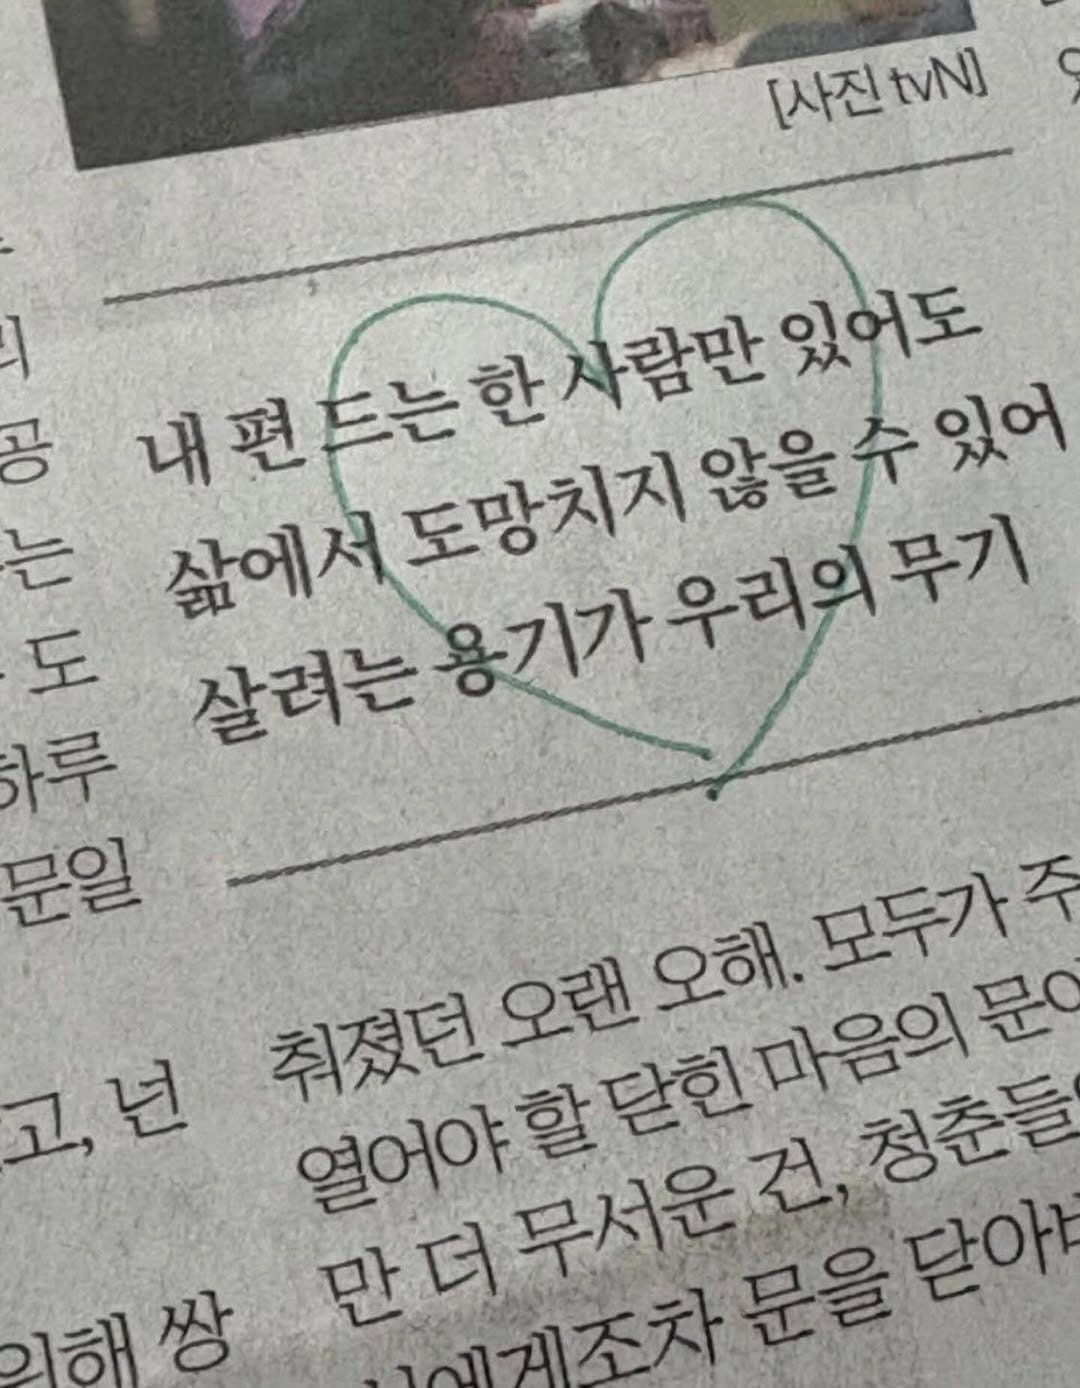 [사진 tvN]
내 편 드는 한 사람만 있어도
삶에서 도망치지 않을 수 있어
살려는 용기가 우리의 무기
공
는
도
하루
문일
고, 넌
의해 쌍
춰졌던 오랜 오해. 모두가 주
열어야 할 닫힌 마음의 문이
만 더 무서운 건, 청춘들
에게조차 문을 닫아